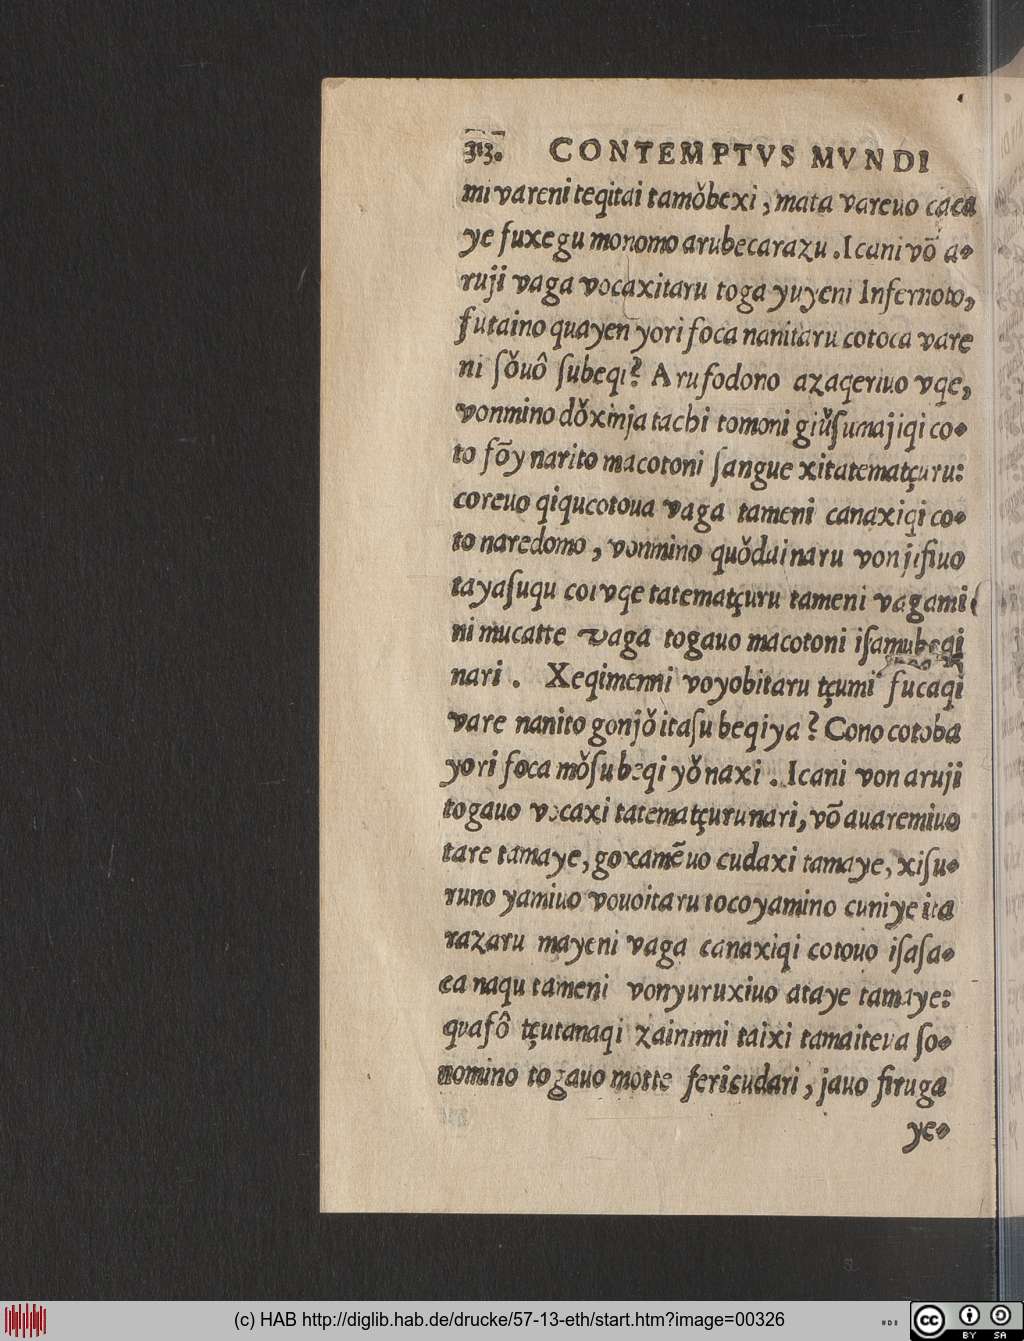 313. CONTEMPTVS MVNDI
mi vareni teqitai tamǒbexi, mata vareuo caca
ye fuxegu monomo arubecarazu. Icani võ a-
ruji vaga vocaxitaru toga yuyeni Infernoto,
futaino quayen yori foca nanitaru cotoca vare
ni ſǒuô ſubeqi? Arufodono azaqeriuo vqe,
vonmino dǒxinja tachi tomoni giǔſumajiqi co-
to fõy narito macotoni ſangue xitatematçuru:
coreuo qiqucotoua vaga tameni canaxiqi co-
to naredomo, vonmino quǒdai naru von jifiuo
tayaſuqu coi vqe tatematçuru tameni vagami
ni mucatte vaga togauo macotoni iſamubeqi
nari. Xeqimenni voyobitaru tçumi fucaqi
vare nanito gonjǒ itaſu beqi ya? Cono cotoba
yori foca mǒſubeqi yǒ naxi. Icani von aruji
togauo vocaxi tatematçuru nari, võ auaremiuo
tare tamaye, goxamẽuo cudaxi tamaye, xiſu-
runo yamiuo vouoitaru tocoyamino cuniye ita
razaru mayeni vaga canaxiqi cotouo iſaſa-
ca naqu tameni vonyuruxiuo ataye tamaye:
quafô tçutanaqi zaininni taixi tamaiteua ſo-
nomino togauo motte feri cudari, jauo firuga
ye-
(c) HAB http://diglib.hab.de/drucke/57-13-eth/start.htm?image=00326
BY SA